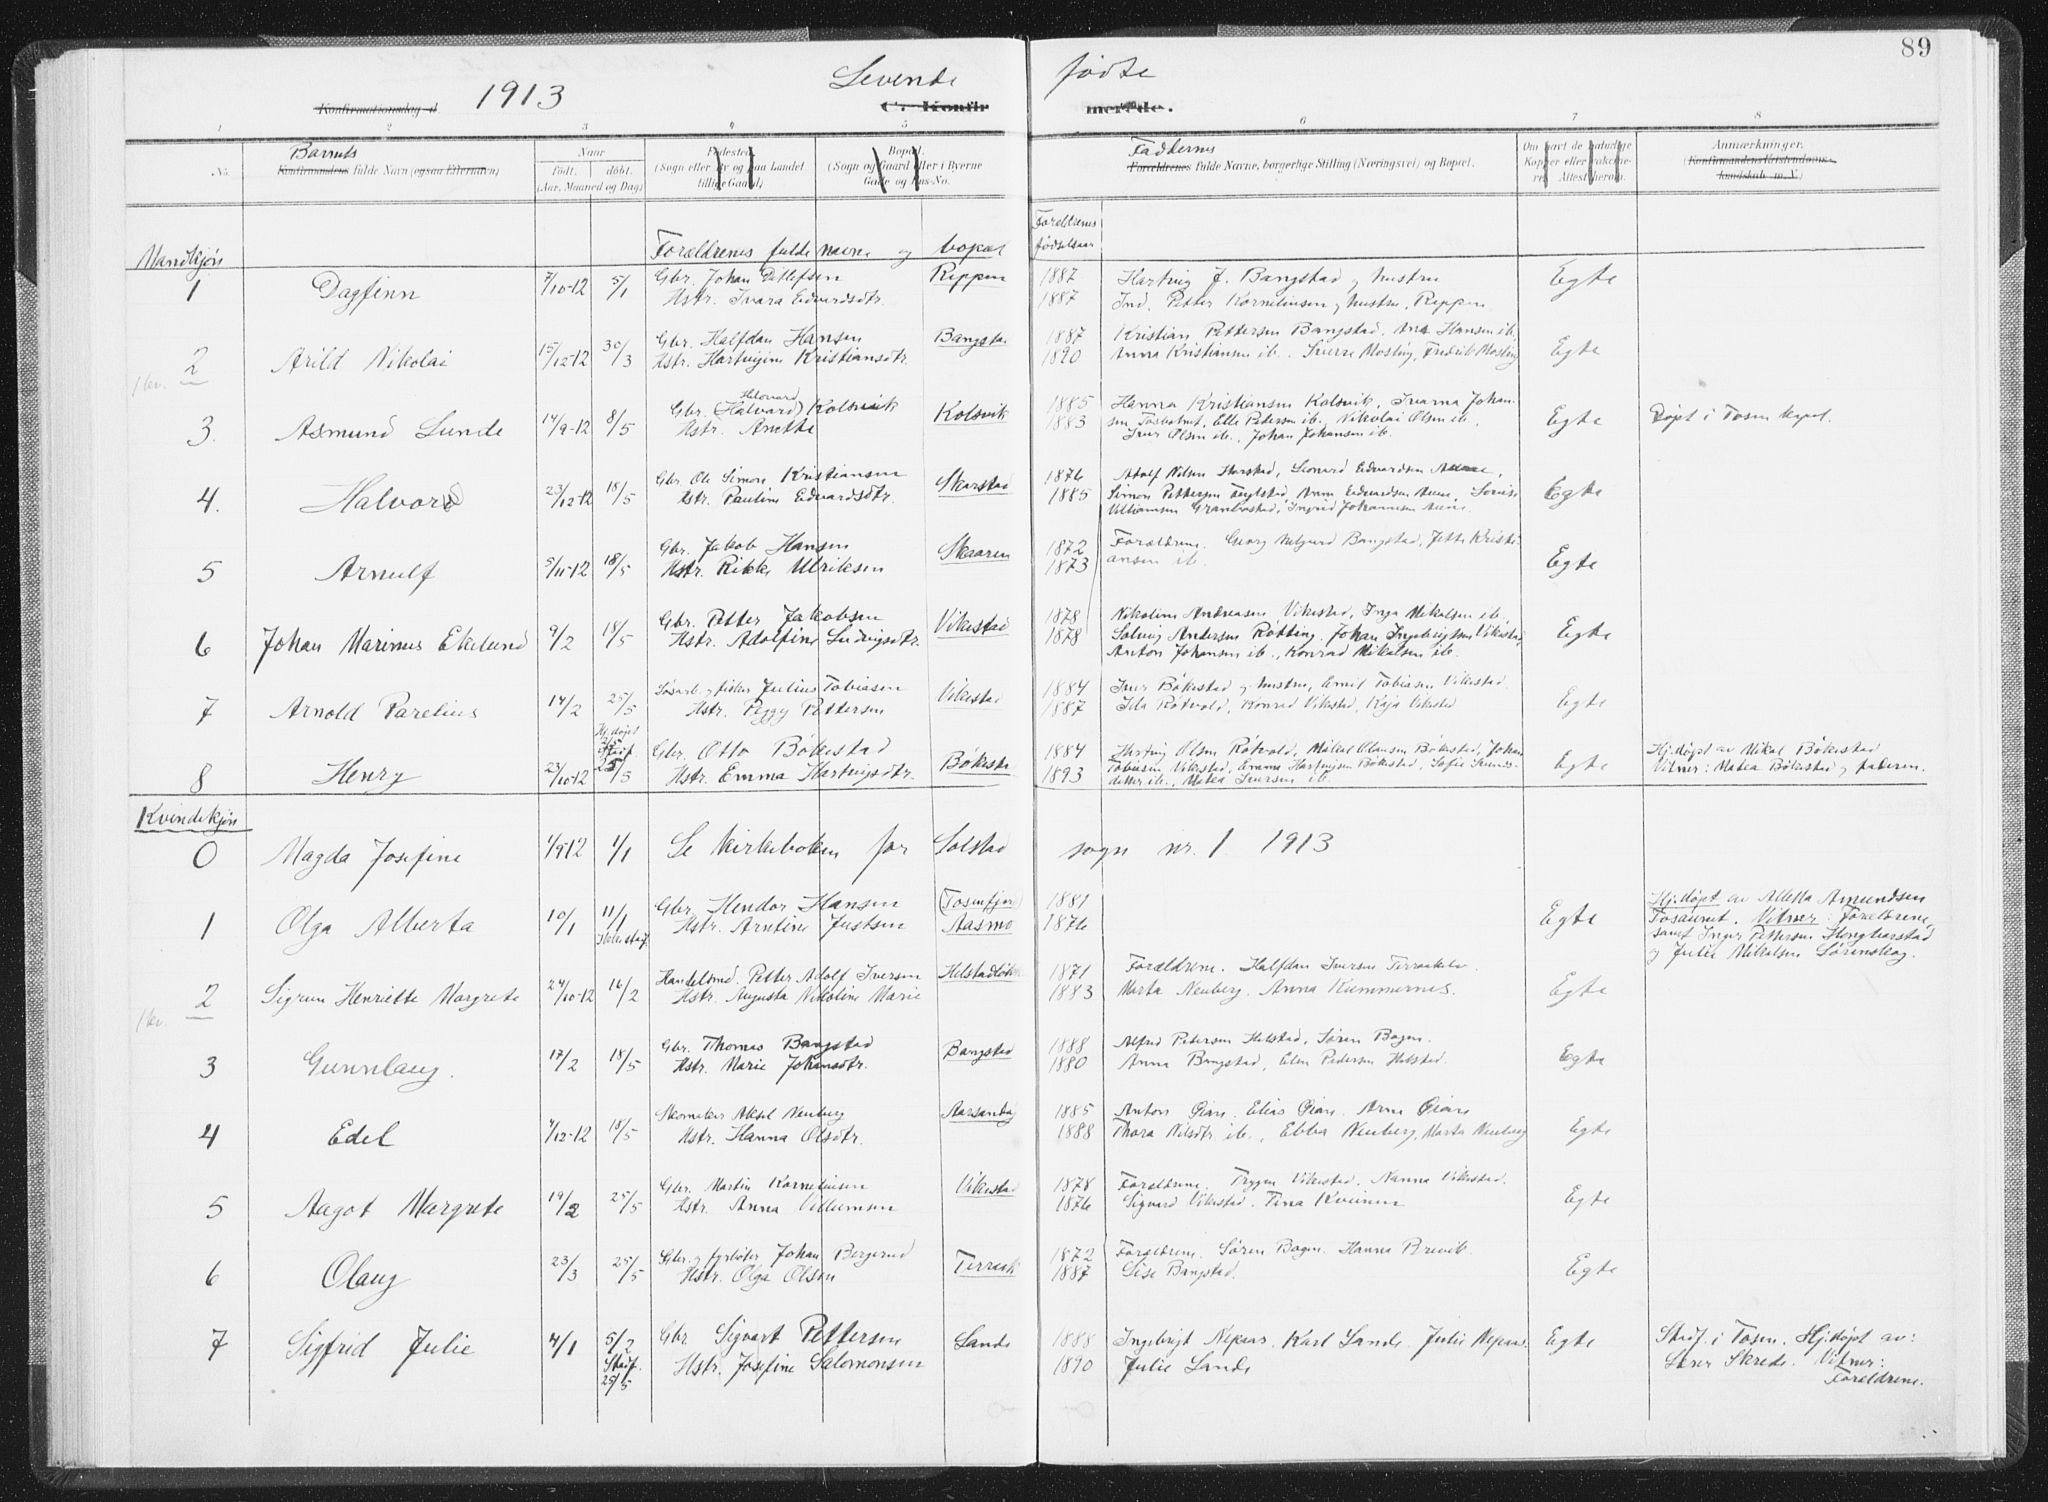 89
1913 Levende fødte
Konfirmationsdag d. C. Konfirmerede.
1 2 3 4 5 6 7 8
No. Barnets
Konfirmandens fulde Navn (ogsaa Efternavn)
Naar
Født. døbt.
(Aar, Maaned og Dag)
Fødested
(Sogn eller By og paa Landet
tillige Gaard)
Bopæl.
(Sogn og Gaard eller i Byerne
Gade og Hus-No.
Faddernes
Forældrenes fulde Navne, borgerlige Stilling (Næringsvei) og Bopæl.
Om havt de naturlige
Kopper eller vakcine-
ret. Attest herom.
Anmærkninger.
(Konfirmandens Kristendoms-
kundskab m. V.)
Mandkjøn Forældrenes fulde navne og bopæl Forældrenes
fødselsaar
1 Dagfinn 7/10-12 5/1 Gbr. Johan Detlefsen Reppen 1887 Hartvig J. Bangstad og hustru Egte
Hstr. Ivara Edvardsdtr. 1887 Ind. Petter Kornelinsen og hustru, Reppen
2 Arild Nikolai 15/12-12 30/3 Gbr. Halfdan Hansen Bangsta 1887 Kristian Pettersen Bangstad, Ana Hansen ib, Egte
Hstr. Hartvigine Kristiansdtr. 1890 Anna Kristiansen ib. Sverre Mosling, Fredrik Mosling
1 kv.
3. Asmund Lunde 14/9-12 8/5 Gbr. (Halvard) Kolsvik Kolsvik 1885 Hanna Kristiansen Kolsvik, Ivarna Johan- Egte Døpt i Tosen kapel.
Hstr. Anette 1883 sen, Tosbotnet, Elle Petersen ib., Nikolai Olsen ib.,
Iver Olsen ib., Johan Johansen ib.
4. Halvard 23/12-12 18/5 Gbr. Ole Simon Kristiansen Skarstad 1876 Adolf Nilsen Horstad, Leonard Edvardsen Aune, Egte
Hstr. Pauline Edvardsdtr. 1885 Simon Pettersen, Anna Edvardsen Aune, Louise
Villiamsen Granbostad, Ingrid Johannesen Aune.
5 Arnulf 5/11-12 18/5 Gbr. Jakob Hansen Skaaren 1872 Forældrene. Georg Bangstad, Jette Kristi- Egte
Hstr. Rikke Ulriksen 1873 ansen ib.
6 Johan Marinus Ekelund 9/2 18/5 Gbr. Petter Jakobsen Vikestad 1878 Nikoline Andreasen Vikestad, Inga Mikalsen ib, Egte
Hstr. Adolfine Ludvigsdtr. 1878 Solvig Andersen Røtting. Johan Ingebrigtsen Vikestad,
Anton Johansen ib., Konrad Mikalsen ib.
7 Arnold Parelius 14/2 25/5 Løsarb. og fisker Julius Tobiasen Vikestad 1884 Iver Bøkestad og hustru, Emil Tobiasen Vikestad. Egte
Hstr. Peggy Pettersen 1887 Ida Røtvold, Konrad Vikestad, Kaja Vikestad
8 Henry 23/10-12 Hj.døpt Stadf. 25/5 Gbr. Otto Bøkestad Bøkesta 1884 Hartvig Olsen Røtvold, Mikal Olausen Bøkestad, Johan Egte Hj.døpt av Mikal Bøkestad
Hstr. Emma Hartvigsdtr. 1893 Tobiasen Vikestad, Emma Hartvigsen Bøkestad, Sofie Ivers- Vitner: Matea Bøkestad og faderen.
datter ib., Matea Iversen ib.
Kvindekjøn
0 Magda Josefine 1/9 12 1/1 Se kirkeboken for Solstad sogn nr. 1 1913
1 Olga Alberta 10/1 11/1 Gbr. Hendor Hansen (Tosenfjord) 1881 Egte Hj.døpt av Aletta Amundsen
Hstr. Arntine Justsen Aasmo 1876 Tosaunet. Vitner: Forældrene,
samt Inger Pettersen
og Julie Mikalsen Sørenskog.
2 Sigrun Henriette Margrete 24/10-12 16/2 Handelsmd. Petter Adolf Iversen 1871 Forældrene. Halfdan Iversen Terraakelv. Egte
Hstr. Augusta Nikoline Marie 1883 Marta Neuberg. Anna Kummernes.
1 kv.
3 Gunnlaug. 17/2 18/5 Gbr. Thomas Bangstad Bangstad 1888 Alfred Petersen Helstad, Søren Bogen. Egte
Hstr. Marie Johansdtr. 1880 Anna Bangstad, Elen Petersen Helstad.
4 Edel 4/12-12 18/5 Skomaker Aksel Neuberg Aarsandøy 1885 Anton Oian, Elias Oian. Arne Oian Egte
Hstr. Hanna Olsdtr. 1888 Thora Nilsdtr. ib., Ebba Neuberg, Marta Neuberg
5 Aagot Margrete 19/2 25/5 Gbr. Martin Kornelinsen Vikestad 1878 Forældrene. Trygve Vikestad. Nanna Vikestad. Egte
Hstr. Anna Villumsen 1876 Sigvard Vikestad. Tina Kveinen
6 Olaug 23/3 25/5 Gbr. og fyrbøter Johan Bergerud Terraak 1872 Forældrene. Søren Bogen. Hanna Brevik. Egte
Hstr. Olga Olsen 1887 Lise Bangstad.
7 Sigfrid Julie 4/1 5/2 Gbr Sigvart Pettersen Lande 1888 Ingebrigt Nepaas. Karl Lande. Julie Nepaas. Egte Stadf. i Tosen. Hj.døpt av:
Stadf. 25/5 Hstr. Josefine Salomonsen 1890 Julie Lande Skrede. Vitner:
Forældrene.